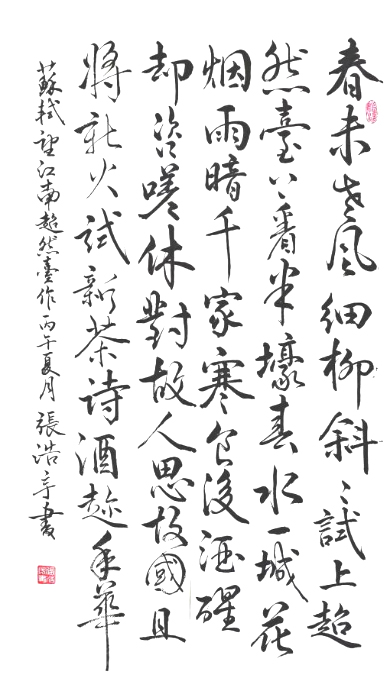 春未老風細柳斜々試上超
然臺上看半壕春水一城花
烟雨暗千家寒食後酒醒
却咨嗟休對故人思故國且
將新火試新茶詩酒趁年華
蘇軾望江南超然臺作丙午夏月張浩書